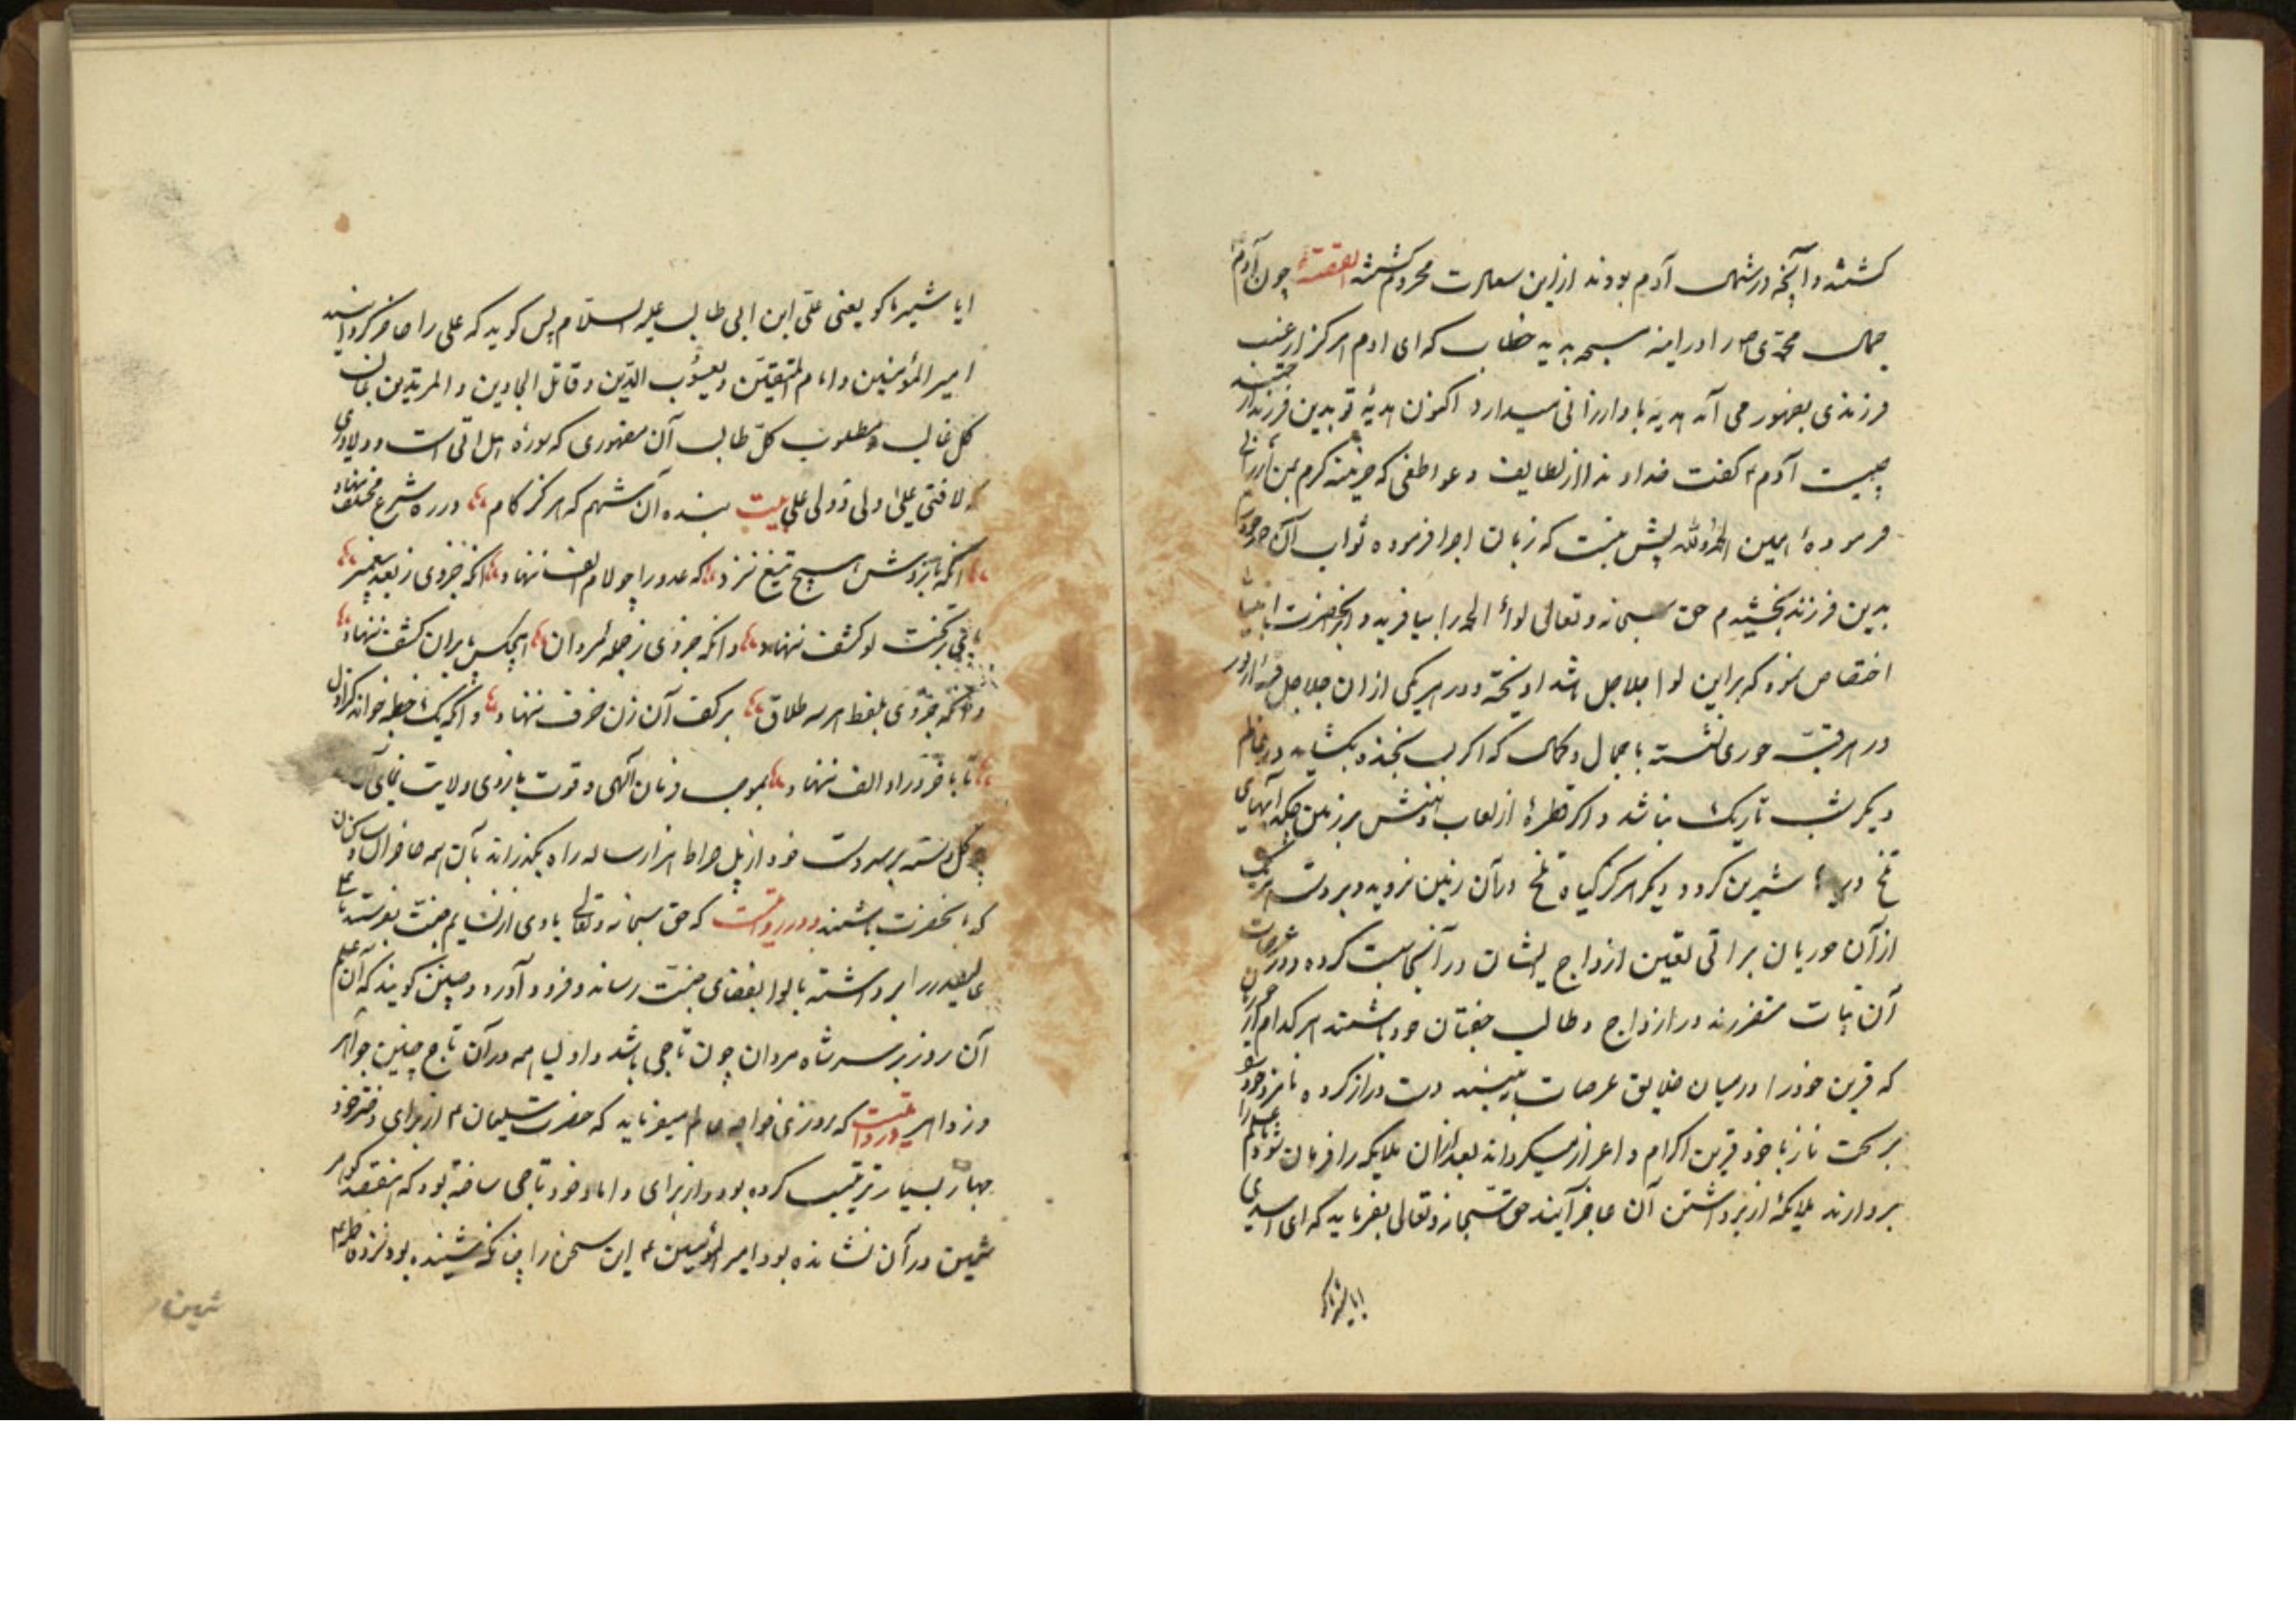 کشتند و آنچه در شمال آدم بودند ازین سعادت محروم کشتند القصه چون آدم
جمال محمدی را در اینه مسبحه بدید خطاب که ای ادم هرکز از غیب
فرزندی بظهور می آید هدیه باو ارزانی میدارد اکنون هدیهٔ تو بدین فرزند ارجمند
چیست آدم کفت خداوندا از لطایف و عواطفی که خزینه کرم بمن ارزانی
فرمودهٔ همین الحمدلله پیش نیست که زبان اجرا فرموده ثواب آن
بدین فرزند بخشیدم حق سبحانه و تعالی لواء الحمد را بیافرید و بآنحضرت
اختصاص نمود که براین لوا جلاجل باشد اویخته و در هریکی ازان جلاجل قبه از نور
در هر قبه حوری نشسته با جمال و کمال که اکر لب بخنده بکشاید در عالم
دیکر شب تاریک نباشد و اکر قطرهٔ از لعاب دهنش بر زمین چکد آبهای
تلخ دریا شیرین کردد و دیکر هرکز کیاه تلخ در آن زمین نروید و بر دست هریک
ازآن حوریان براتی تعین ازدواج ایشان در آنجا ثبت کرده و در عرصات
آن بنات منتظرند در ازدواج و طالب جفتان خود باشند هرکدام از حوریان
که قرین خود را در میان خلایق عرصات بیند دست دراز کرده نامزد خود را
بر تخت ناز با خود قرین اکرام و اعزاز میکرداند بعد ازان ملایکه را فرمان شود که علم را
بردارند ملایکه از برداشتن آن عاجز آیند حق سبحانه و تعالی بفرماید که ای اسدی
ایا شیر ما کو
ایا شیر ما کو یعنی علی ابن ابی طالب علیه السلام پس کوید که علی را حاضر کردانید
امیر المؤمنین و امام المتقین و یعسوب الدین و قاتل الجاحدین و المرتدین غالب
کل غالب و مطلوب کل طالب آن منصوری که سورهٔ هل اتی است و دلاوری
که لا فتی علی ولی و ولی علی بیت بنده آن شهم که هرکز کام در ره شرع مختلف ننهاد
انکه بر دوش هیچ تیغ نزد که عدو را چو لام الف ننهاد انکه جز وی ز بعد پیغمبر
بافی ترکنت لو کشف ننهاد و انکه جز وی ز جمله مردان هیچکس پا بران کتف ننهاد
و انکه جز وی بلفظ هر سه طلاق بر کف آن زن خرف ننهاد و انکه یک خطبه خواند کز اول
تا بآخر در او الف ننهاد بموجب فرمان آلهی و قوت بازوی ولایت نمای آن
کل دسته بر سر دست خود از پل صراط هزار ساله راه بکذراند بآن همه حاضران و ساکنان
که بآنحضرت باشند و در روایتست که حق سبحانه و تعالی بادی از نسایم جنت بفرستد تا
علی و حیدر را برداشته با لوا بفضای جنت رساند و فرود آورد و چنین کویند که آن علم
آن روز بر سر شاه مردان چون تاجی باشد و اولیا همه در آن تاج چنین جواهر
و زواهر و در روایتست که روزی خواجه عالم میفرماید که حضرت سلیمان از برای دختر خود
جهاز بسیار ترتیب کرده بود و از برای داماد خود تاجی ساخته بود که هفتصد کوهر
ثمین در آن نشانده بود امیر المؤمنین این سخن را چنانکه شنیده بود نزد فاطمه
ثمین